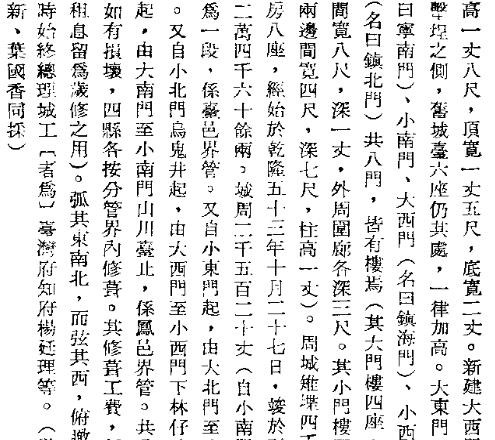 高一丈八尺，頂寬一丈五尺，底寬二丈。新建大西門
壁埕之側，舊城臺六座仍其處，一律加高。大東門
曰寧南門）、小南門、大西門（名曰鎮海門）、小西
（名曰鎮北門）共八門，皆有樓焉（其大門樓四座
間寬八尺，深一丈，外周圍廊各深三尺。其小門樓
兩邊間寬四尺，深七尺，柱高一丈）。周城雉堞四千
房八座，經始於乾隆五十三年十月二十七日，竣於
二萬四千六十餘兩。城周二千五百二十丈（自小南
爲一段，係臺邑界管。又自小東門起，由大北門至
。又自小北門烏鬼井起，由大西門至小西門下林仔
起，由大南門至小南門山川臺止，係鳳邑界管。共
如有損壞，四縣各按分管界內修葺。其修葺工費，
租息留爲歲修之用）。弧其東南北，而弦其西，俯
時始終總理城工〔者爲〕臺灣府知府楊廷理等。（
新、葉國香同採）